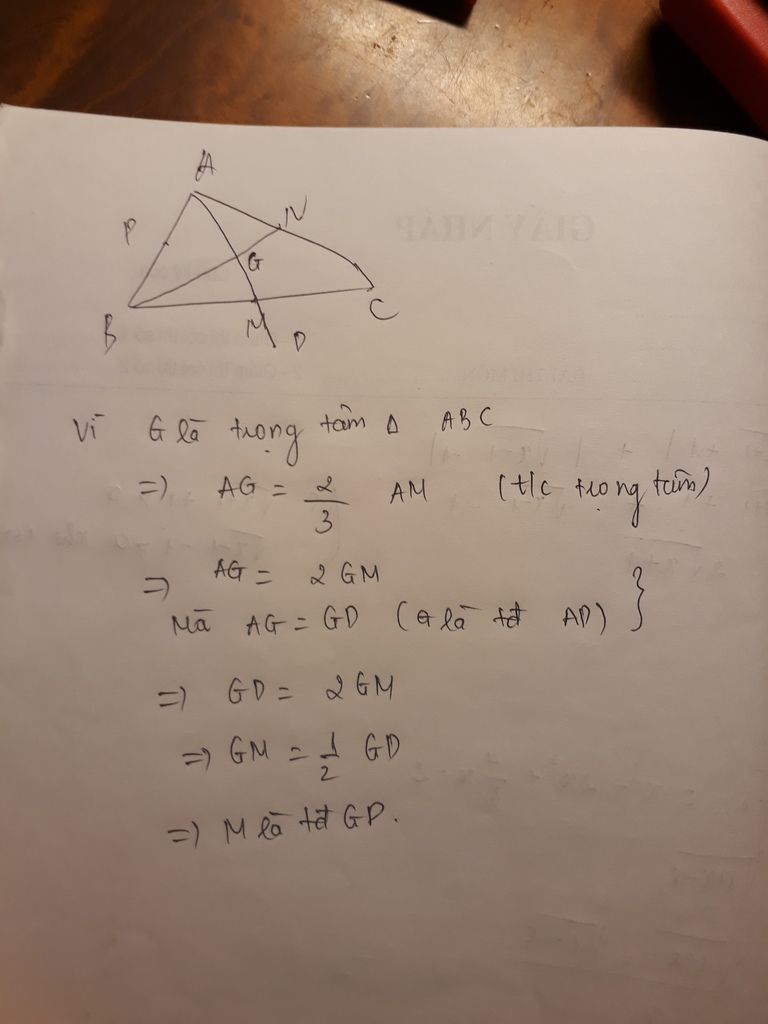 A
P
N
G
B
M
D
C
GIẤY NHÁP
Vì G là trọng tâm Δ ABC
=> AG = 2/3 AM (t/c trọng tâm)
=> AG = 2 GM
Mà AG = GD (G là tđ AD) }
=> GD = 2 GM
=> GM = 1/2 GD
=> M là tđ GD.